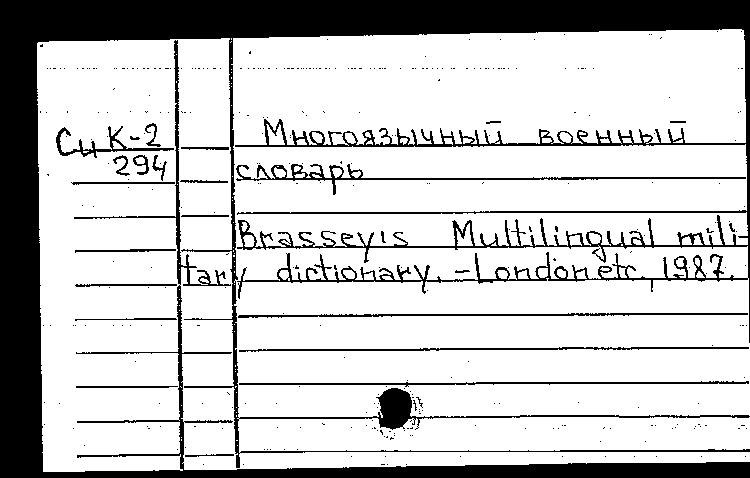 Сц К-2
294
Многоязычный военный
словарь
Brassey's Multilingual mili-
tary dictionary. - London etc., 1987.